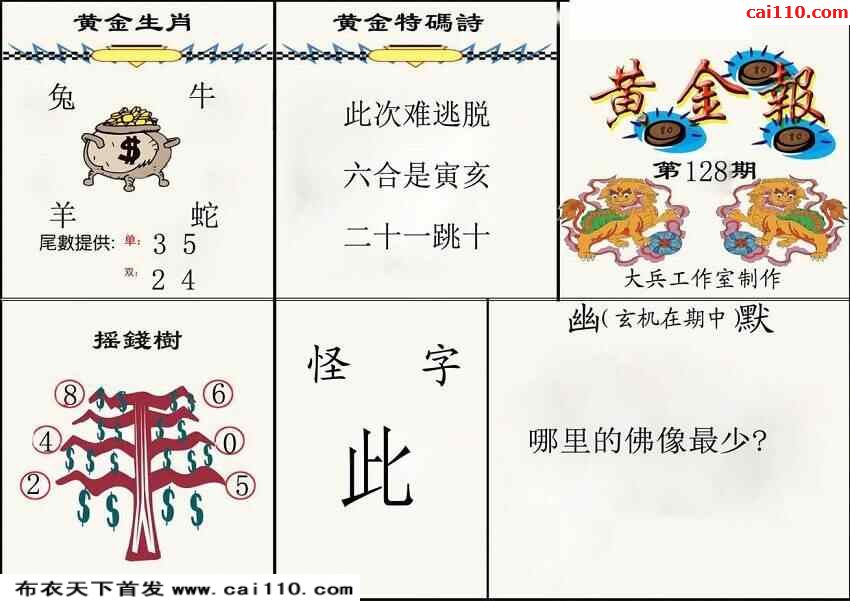 cai110.com
黄金生肖
兔 牛
$
羊 蛇
尾數提供: 单: 3 5
双: 2 4
黄金特碼詩
此次难逃脱
六合是寅亥
二十一跳十
黄金報
10
10
10
第128期
大兵工作室制作
摇錢樹
8 6
$ $ $ $
4 0
$ $ $ $ $ $
2 5
$ $ $ $
怪 字
此
幽(玄机在期中)默
哪里的佛像最少?
布衣天下首发 www.cai110.com